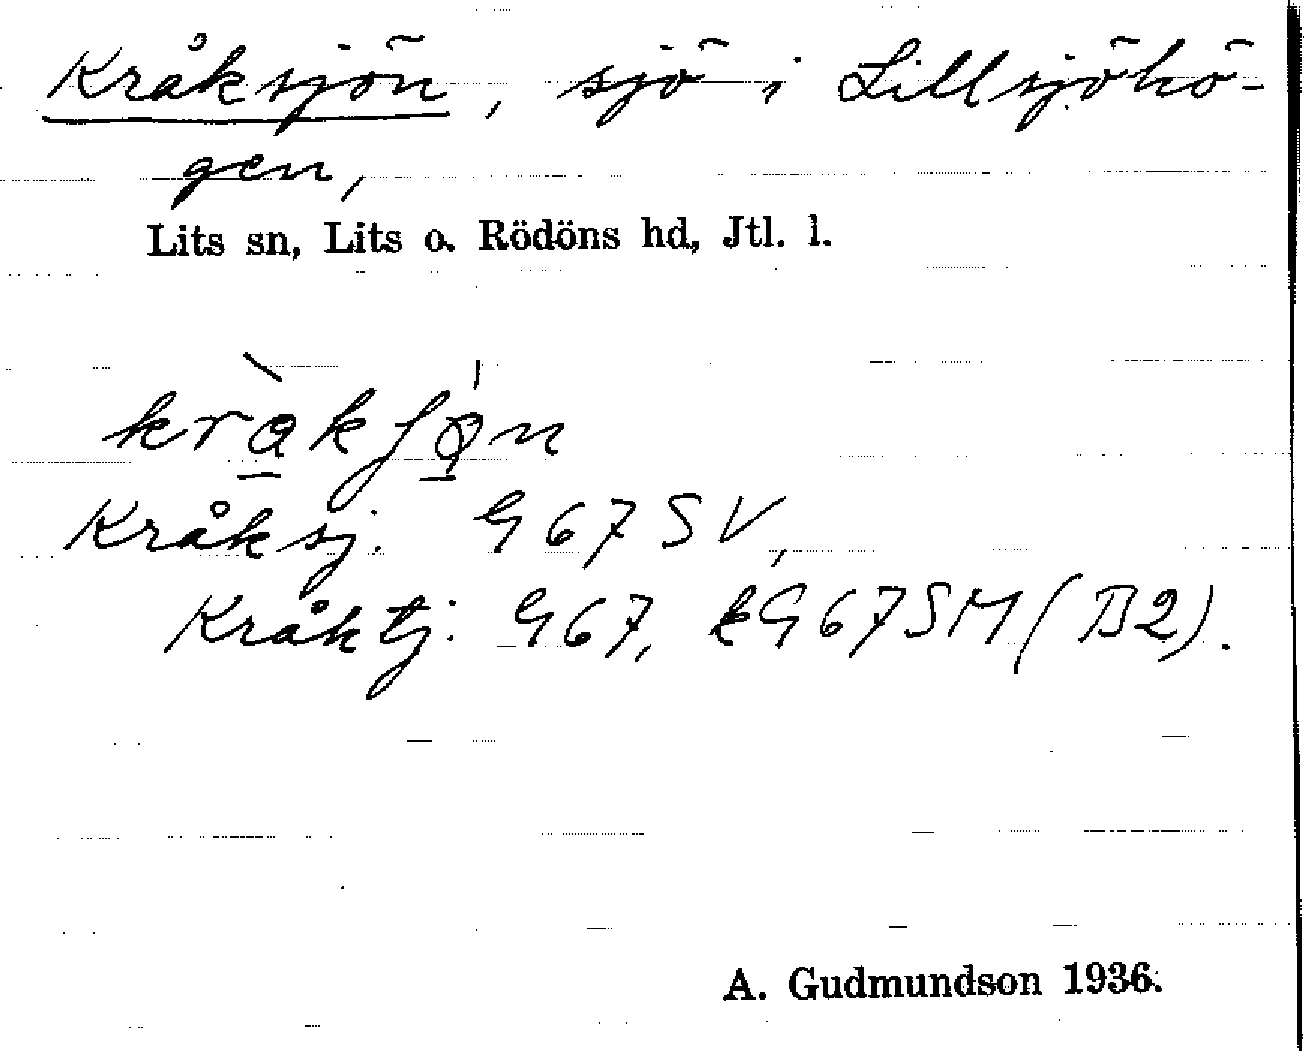 Kråksjön, sjö i Lillsjöhö-
gen,
Lits sn, Lits o. Rödöns hd, Jtl. l.
Kråksj. G67SV,
Kråktj: G67, kG67SM (B2).
A. Gudmundson 1936.